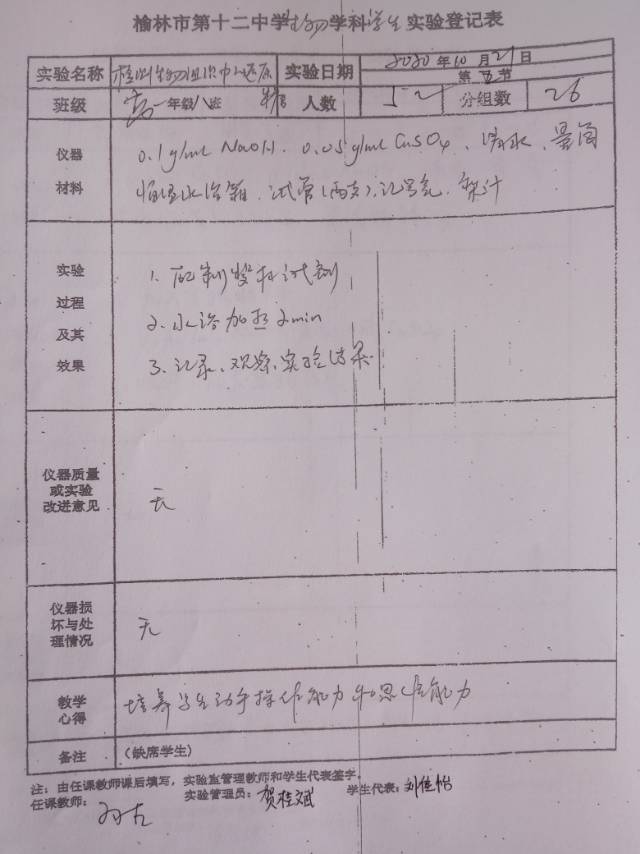 榆林市第十二中学生物学科学生实验登记表
实验名称 检测生物组织中还原糖 实验日期 2020年10月21日
第 节
班级 高一年级八班 人数 52 分组数 26
仪器材料 0.1g/ml NaOH、0.05g/ml CuSO4、清水、量筒
恒温水浴箱、试管(两支)、记号笔、梨汁
实验过程及其效果 1. 配制斐林试剂
2. 水浴加热2min
3. 记录、观察、实验结果
仪器质量或实验改进意见 无
仪器损坏与处理情况 无
教学心得 培养学生动手操作能力和思维能力
备注 (缺席学生)
注:由任课教师课后填写,实验监管理教师和学生代表签字。
任课教师: 实验管理员:贺桂斌 学生代表:刘佳怡